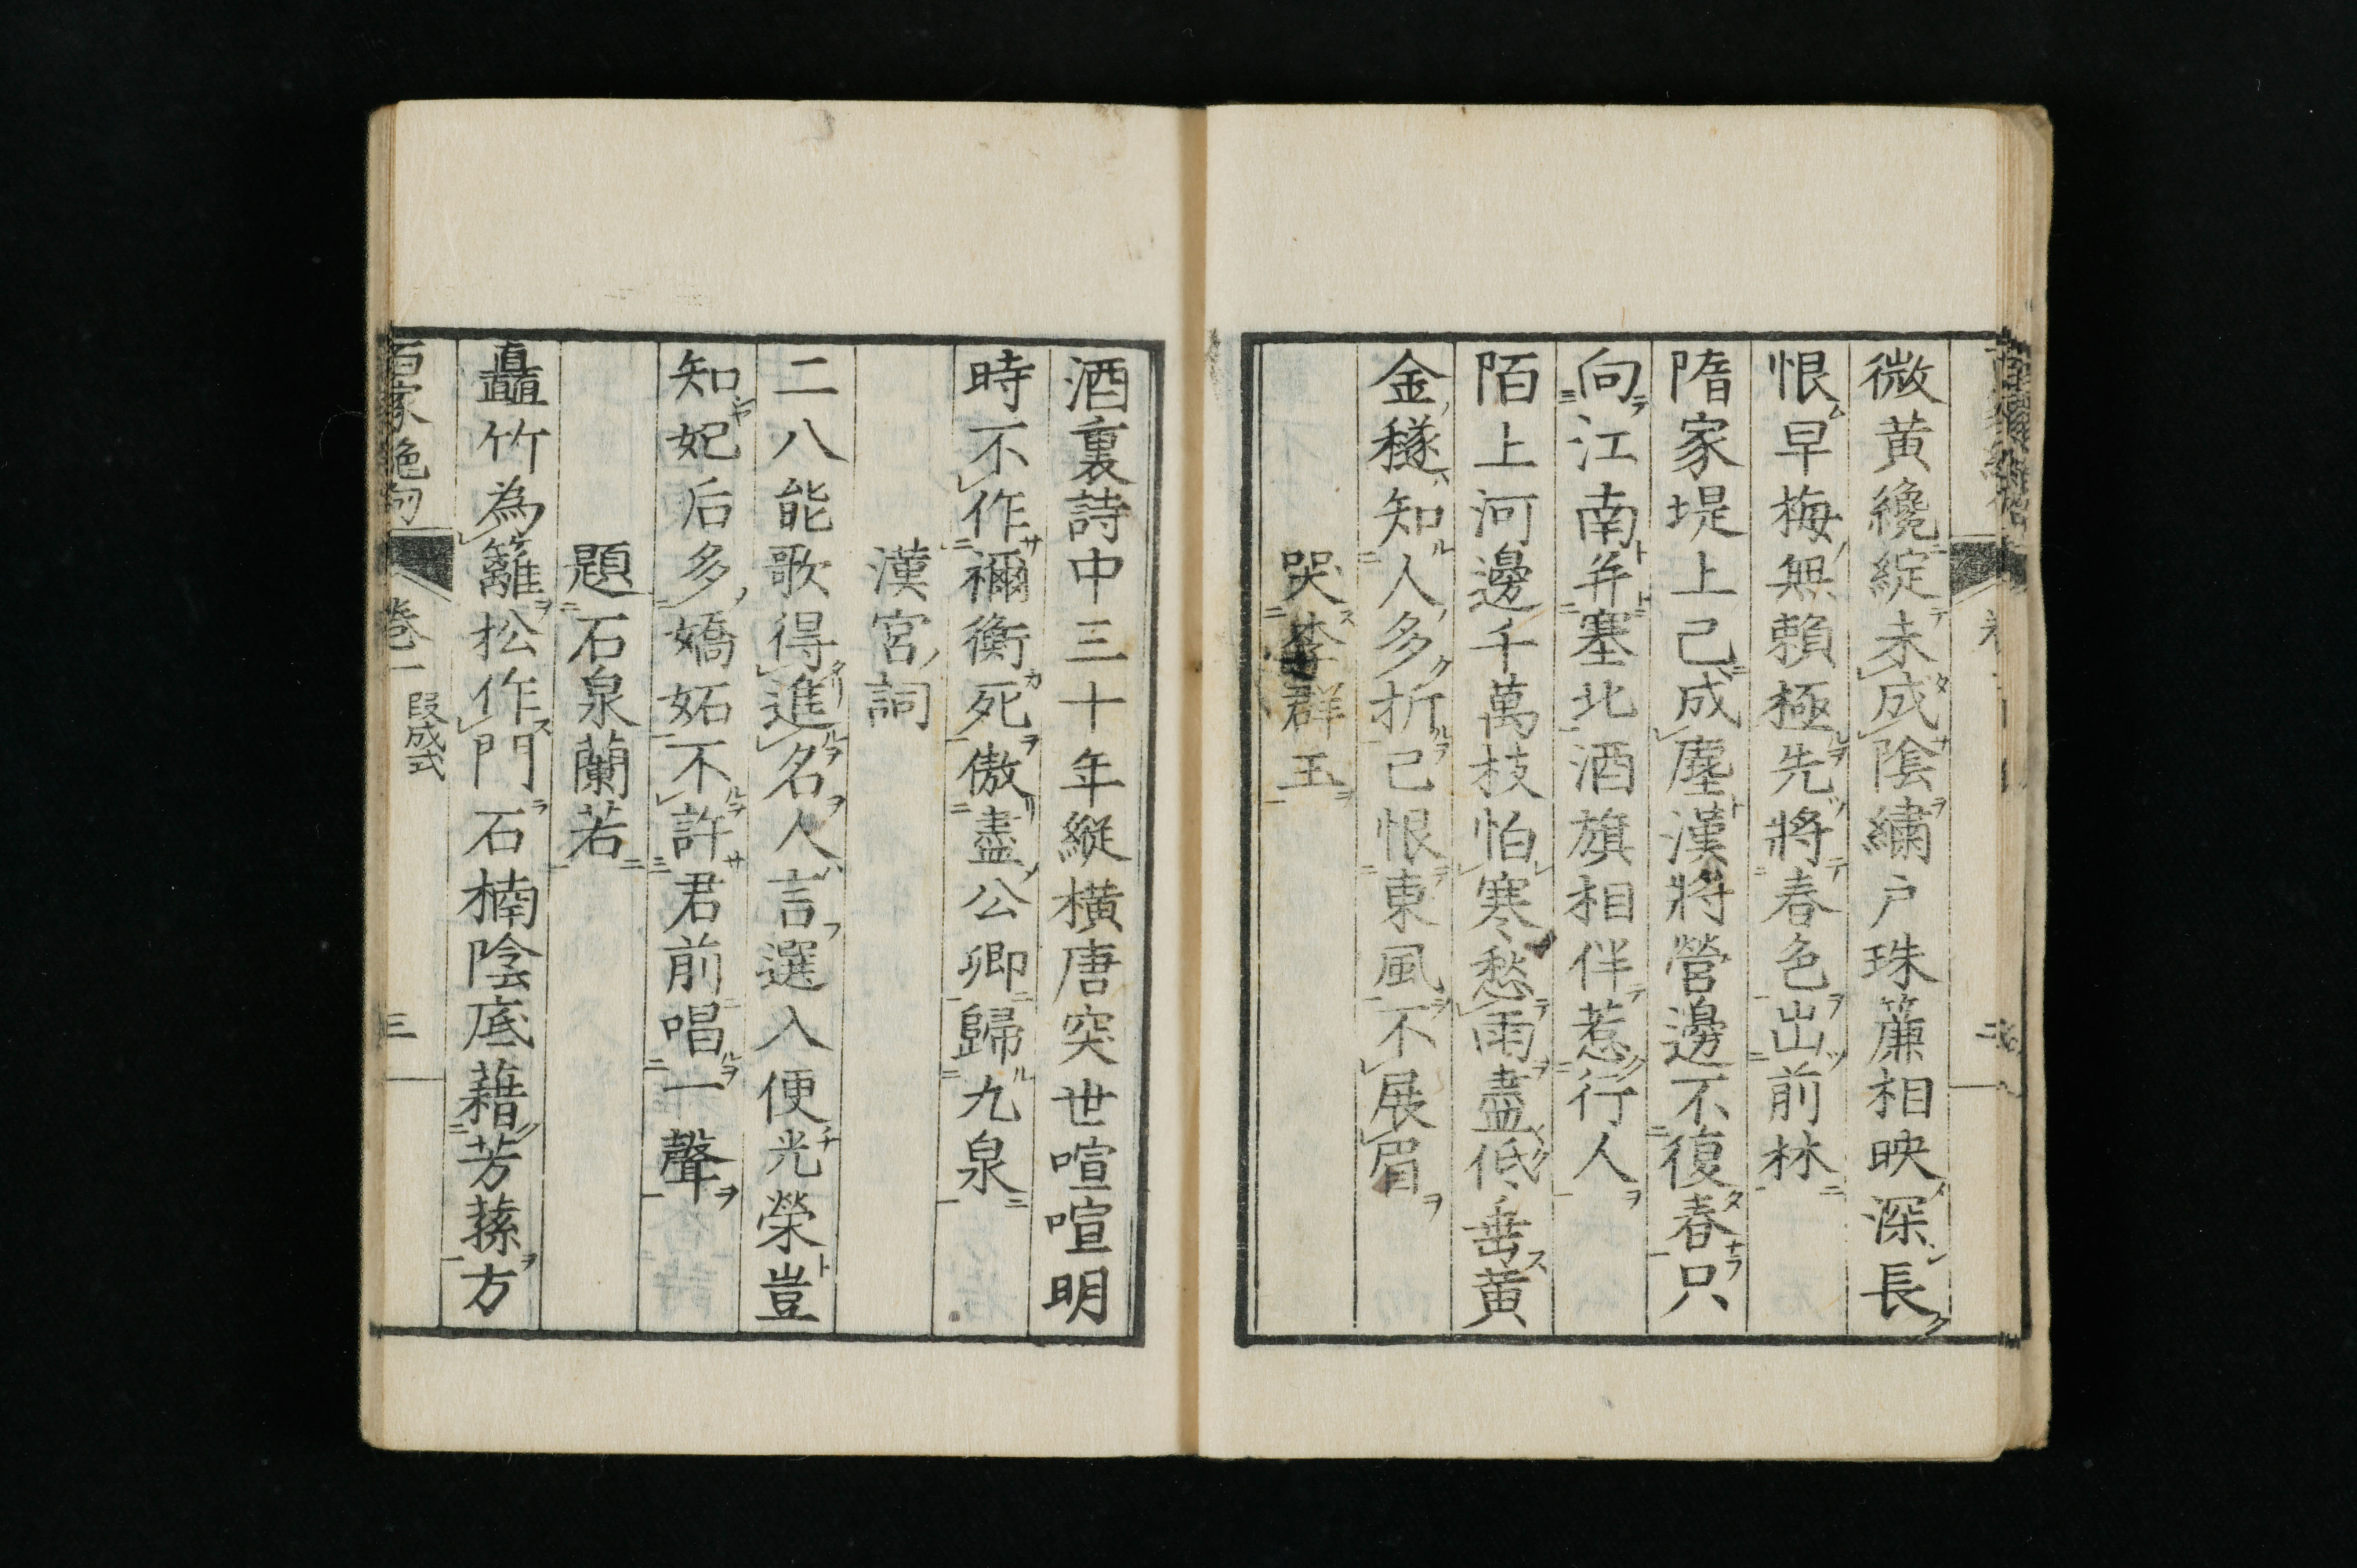 微黄纔綻未成陰繡戸珠簾相映深長
恨早梅無賴極先將春色出前林
隋家堤上已成塵漢將營邊不復春只
向江南并塞北酒旗相伴惹行人
陌上河邊千萬枝怕寒愁雨盡低垂黄
金穟知人多折已恨東風不展眉
哭李群玉
酒裏詩中三十年縱橫唐突世喧喧明
時不作禰衡死傲盡公卿歸九泉
漢宮詞
二八能歌得進名人言選入便光榮豈
知妃后多嬌妬不許君前唱一聲
題石泉蘭若
矗竹為籬松作門石楠陰底藉芳蓀方
百家絶句 卷一 段成式 三